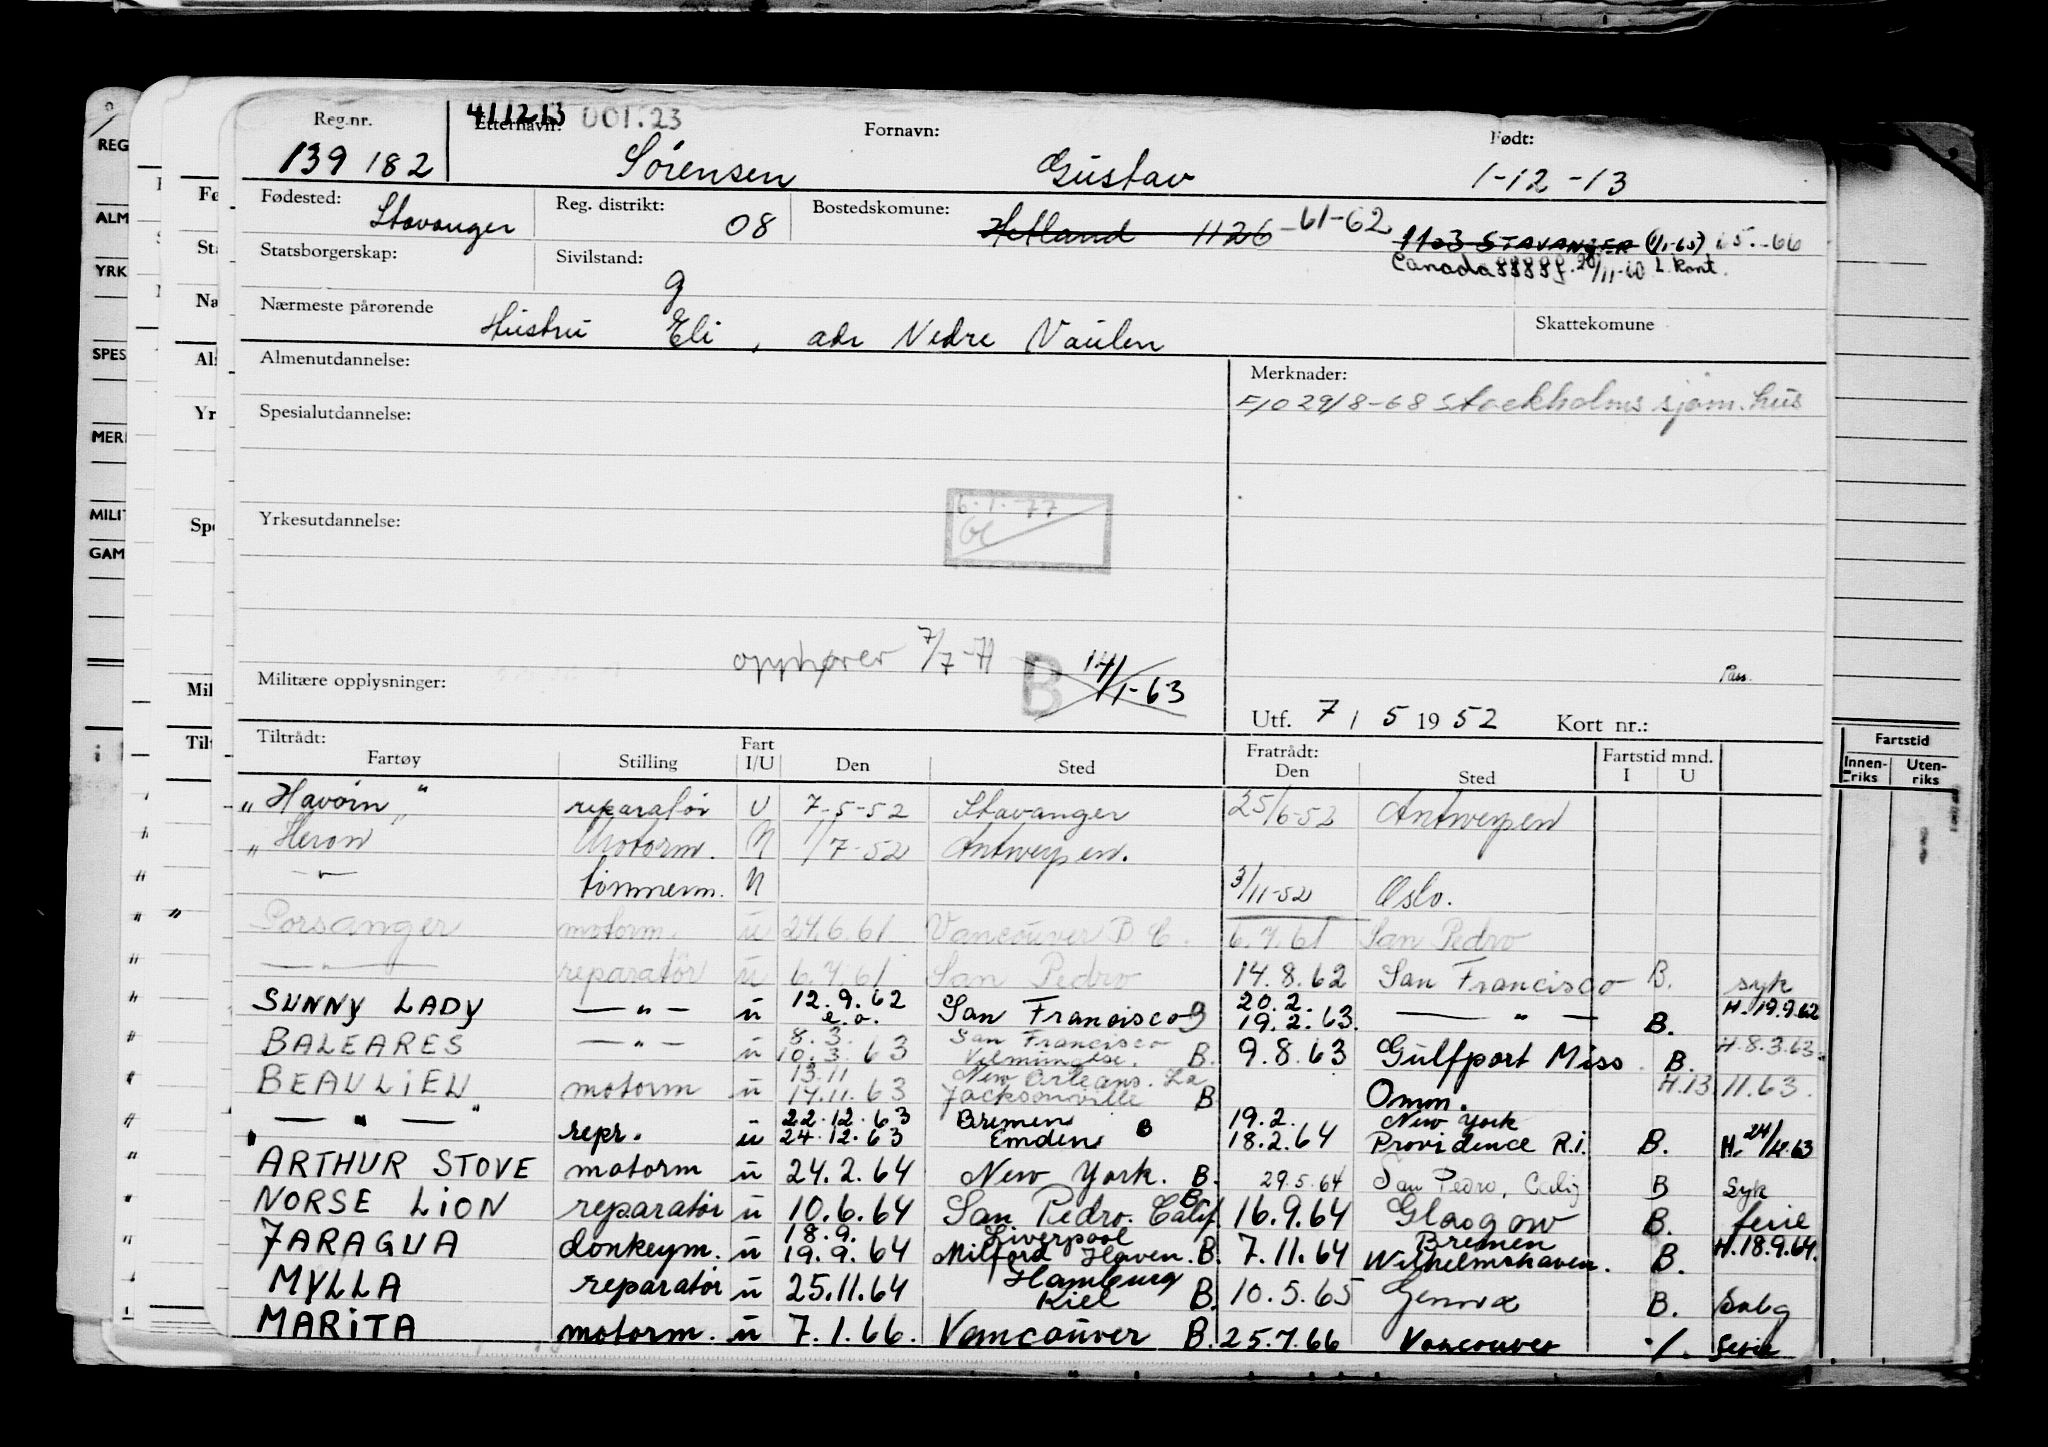 Reg.nr. 411213 Etternavn: 001.23 Fornavn: Født:
139 182 Sörensen Gustav 1-12-13
Fødested: Stavanger Reg. distrikt: 08 Bostedskomune: Hetland 1126 -61-62 1103 STAVANGER (1/1-65) 65.-66
Statsborgerskap: Sivilstand: g Canada 8888 f. 28/11-60 L. Kont.
Nærmeste pårørende Hustru Eli, adr Nedre Vaulen Skattekomune
Almenutdannelse: Merknader:
F/O 29/8-68 Stockholms sjöm. hus
Spesialutdannelse:
Yrkesutdannelse: 6.1.-77
opphører 7/7-71 B 14/1-63
Militære opplysninger: Pass.
Utf. 7 / 5 1952 Kort nr.:
Tiltrådt: Fart Fratrådt: Fartstid mnd.
Fartøy Stilling I/U Den Sted Den Sted I U
"Havörn" reparatör U 7-5-52 Stavanger 25/6-52 Antwerpen
" Heron " Motorm. U 1/7-52 Antwerpen.
-"- tömmerm. U 3/11-52 Oslo.
Porsanger motorm. u 24.6.61 Vancouver B C. 6.7.61 San Pedro
-"- reparatör u 6.7.61 San Pedro 14.8.62 San Francisco B. syk
SUNNY LADY -"- u 12.9.62 e.o. San Francisco B 20.2. 19.2.63. -"- B. H. 19.9.62
BALEARES -"- u 8.3. 10.3.63 San Francisco Vilmington. B. 9.8.63 Gulfport Miss. B. H.8.3.63.
BEAULIEU motorm u 13.11 14.11.63 New Orleans. La Jacksonville B Omm. H.13.11.63.
-"- repr. u 22.12.63 24.12.63 Bremen Emden B 19.2. 18.2.64 New York Providence R.I. B. H. 24/12.63
ARTHUR STOVE motorm u 24.2.64 New York. B. 29.5.64 San Pedro, Calif B syk
NORSE LION reparatör u 10.6.64 San Pedro. Calif. B. 16.9.64 Glasgow B. ferie
JARAGUA donkeym. u 18.9. 19.9.64 Liverpool Milford Haven. B. 7.11.64 Bremen Wilhelmshaven. B. H.18.9.64.
MYLLA reparatör u 25.11.64 Hamburg Kiel B. 10.5.65 Genova B. Salg
MARITA motorm. u 7.1.66. Vancouver B. 25.7.66 Vancouver ./. ferie
REG
ALM
YRK
SPES
MERI
MILIT
GAM
Fø
St
Na
Al
Yr
Spe
Mil
Tilt
Fartstid
Innenriks Utenriks